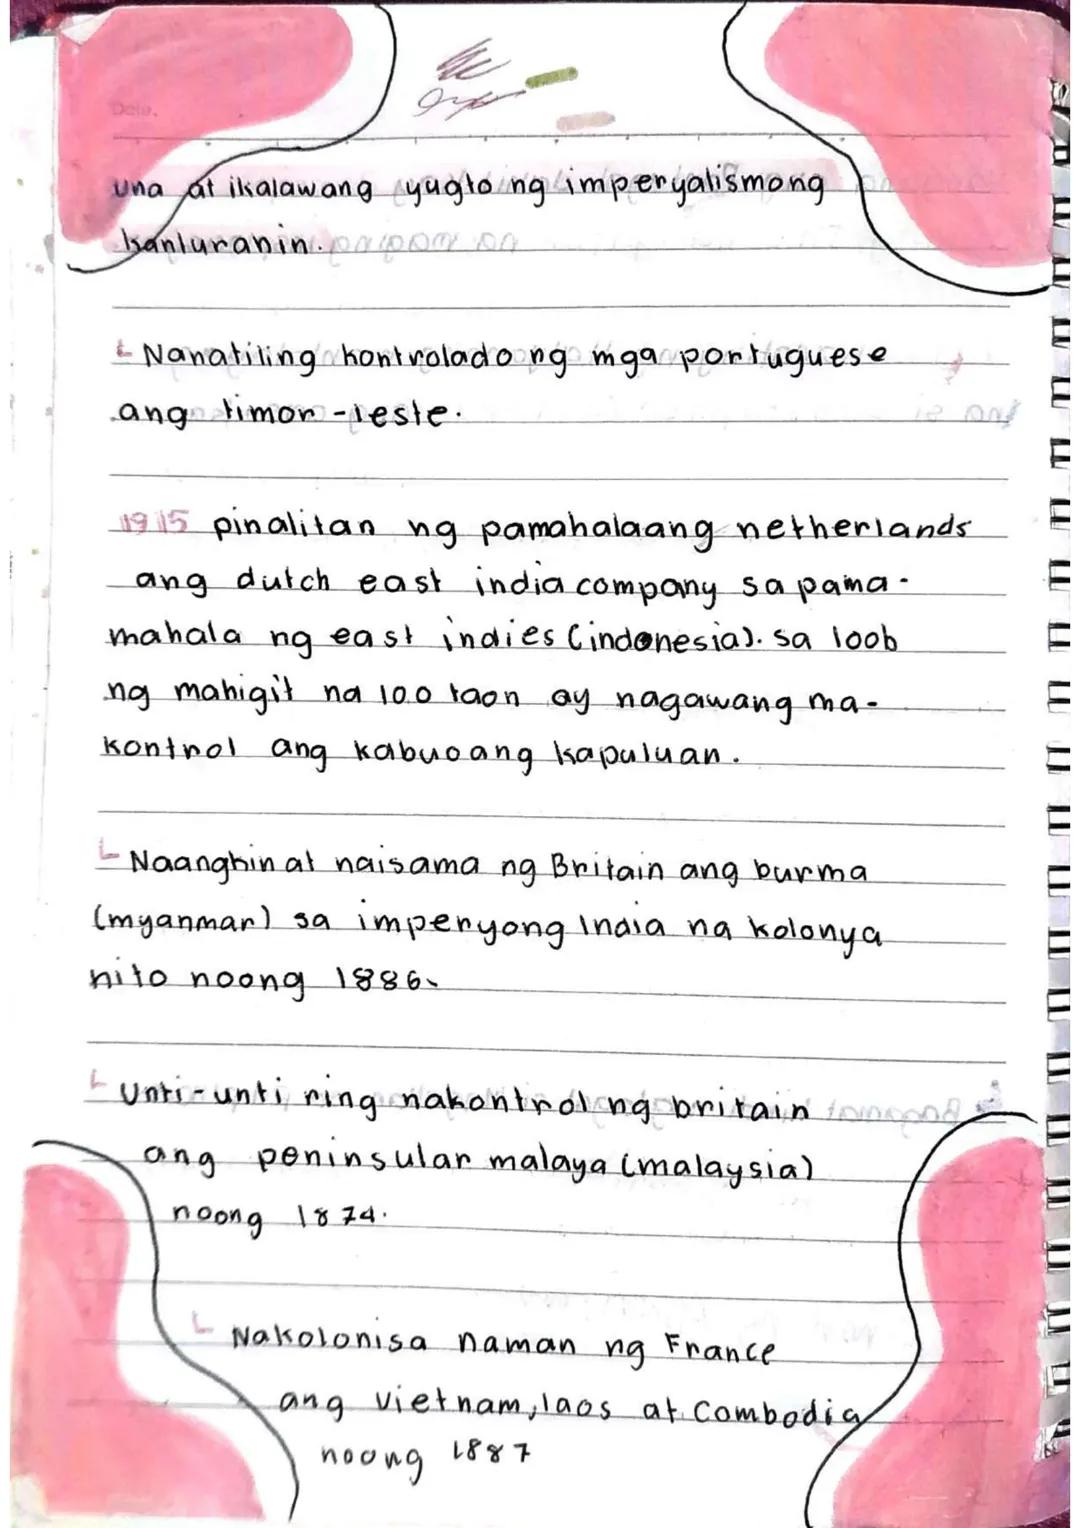 Date.
una at ikalawang yugto ng imperyalismong
kanluranin.
Nanatiling kontrolado ng mga portuguese
ang timor-leste.
1915 pinalitan ng pamahalaang netherlands
ang dutch east india company sa pama-
mahala ng east indies (indonesia). sa loob
ng mahigit na 100 taon ay nagawang ma-
kontrol ang kabuoang kapuluan.
Naangkin at naisama ng Britain ang burma
(myanmar) sa imperyong India na kolonya
nito noong 1886.
Unti-unti ring nakontrol ng britain
ang peninsular malaya (malaysia)
noong 1874.
Nakolonisa naman ng France
ang vietnam, laos at Combodia
noong 1887